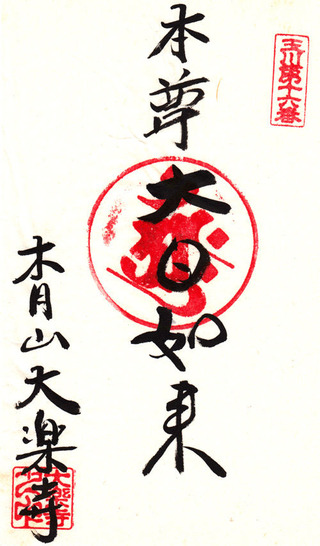 玉川第十六番
本尊
大日如来
木月山大楽寺